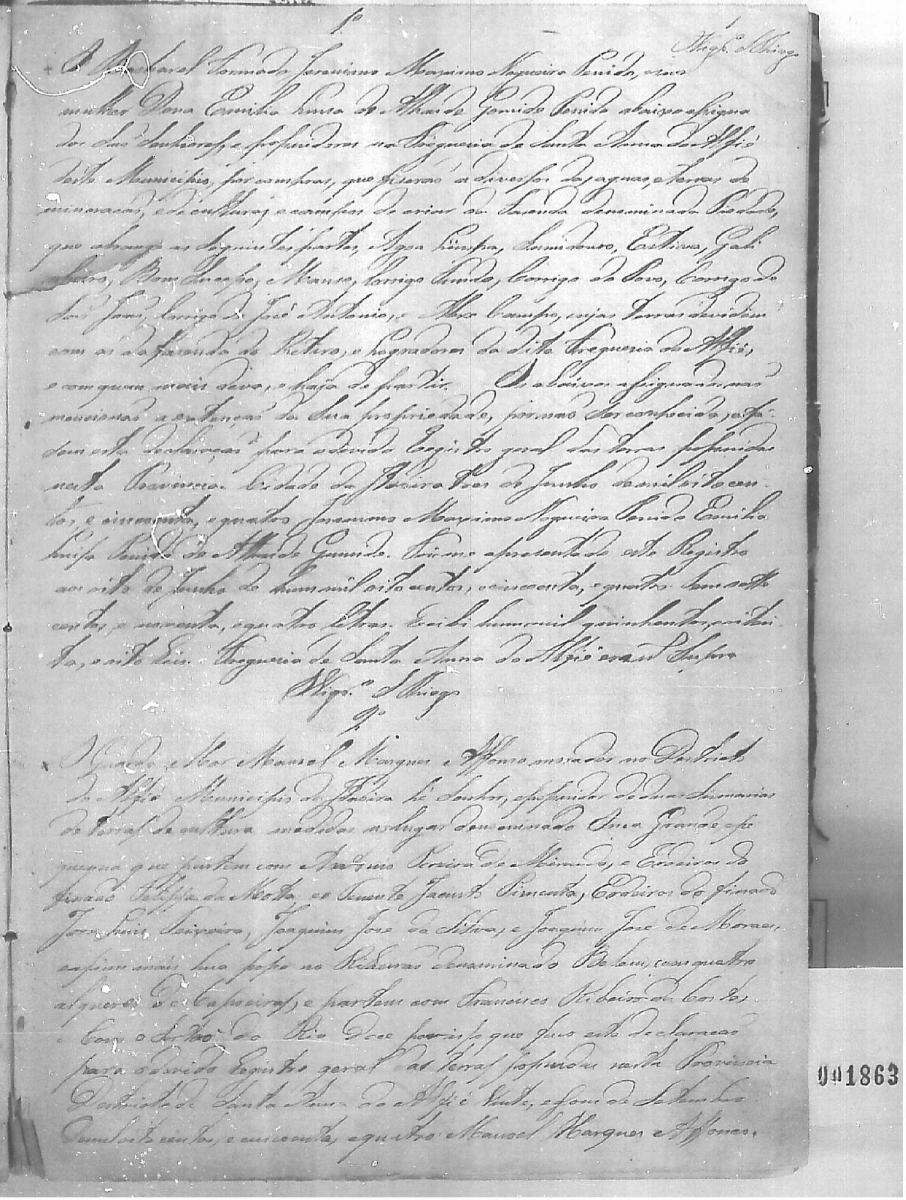 1º
1
Vigº. S Thiago
O Bacharel Formado Jeronimo Maximo Nogueira Penido, e sua
mulher Dona Emilia Luisa de Athaide Penido abaixo assigna
dos Saõ Senhores, e possuidores na Freguesia de Santa Anna do Alfié
deste Municipio, por compras, que fizeraõ a diversos das agoas, e terras de
mineraçaõ, e de culturas, e campos de criar da Fasenda denominada Piedade,
que abrange as seguintes partes, Agoa Limpa, Sumidouro, Estiva,
Bom Sucesso, Corrigo Fundo, Corrigo da Corrigo de
Corrigo de José Antonio, e Campo, cujas terras devidem
com as da fazenda do Retiro, e Logradores da dita Freguesia do Alfié,
e com quem mais deva, e haja de partir. Os abaixo assignados naõ
mencionaõ a extençaõ da Sua propriedade, por naõ ser conhecida, e fa-
sem esta declaraçaõ para o devido Registro geral das terras possuidas
nesta Provincia. Cidade da Itabira tres de Junho de mil oito cen-
tos, e cincoenta, e quatro Jeronimo Maximo Nogueira Penido Emilia
Luisa Penido de Athaide. Foi-me apresentado este Registro
aos oito de Junho de hum mil oito centos, e cincoenta, e quatro. Tem sette
centos, e noventa, e quatro letras. Recebi hum mil quinhentos, e oiten-
ta, e oito reis. Freguesia de Santa Anna do Alfié era ut Supra
Vigº. S Thiago
2º
O Guarda Mor Manoel Marques Affonso morador no Destricto
do Alfié Municipio da Itabira hé Senhor, e possuidor de duas Sesmarias
de terras de cultura medidas no lugar denominado Onça Grande e pe
quena que partem com Antonio Pereira de Miranda, e Erdeiros do
finado Felippe da Motta e o Tenente Jacinto Pimenta, Erdeiros do finado
Luis Teixeira, Joaquim José da Silva, e Joaquim José de Moraes,
e assim mais huma posse no Ribeiraõ denominado Belem, com quatro
alqueres de Capoeiras, e partem com Francisco Ribeiro da Costa,
e Com o Sertaõ do Rio Doce por isso que faço esta declaraçaõ
para o devido Registro geral das terras possuidas nesta Provincia
Destricto de Santa Anna do Alfié vinte, e hum de Setembro
de mil oito centos, e cincoenta, e quatro Manoel Marques Affonso.
001863